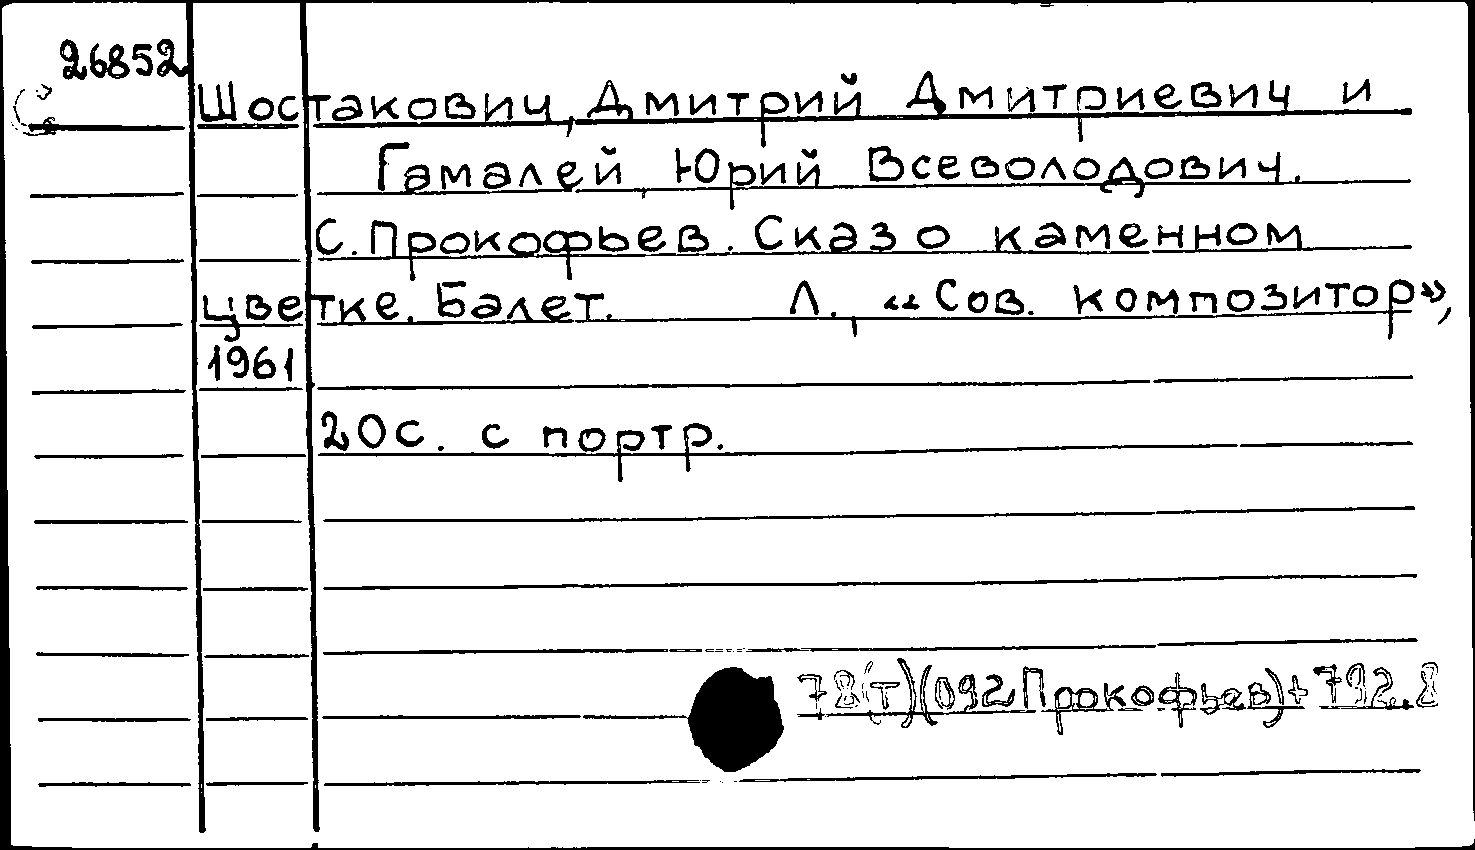 26852
Шостакович, Дмитрий Дмитриевич и
Гамалей, Юрий Всеволодович.
С. Прокофьев. Сказ о каменном
цветке. Балет. Л., «Сов. композитор»,
1961
20с. с портр.
78(т)(092Прокофьев)+792.8